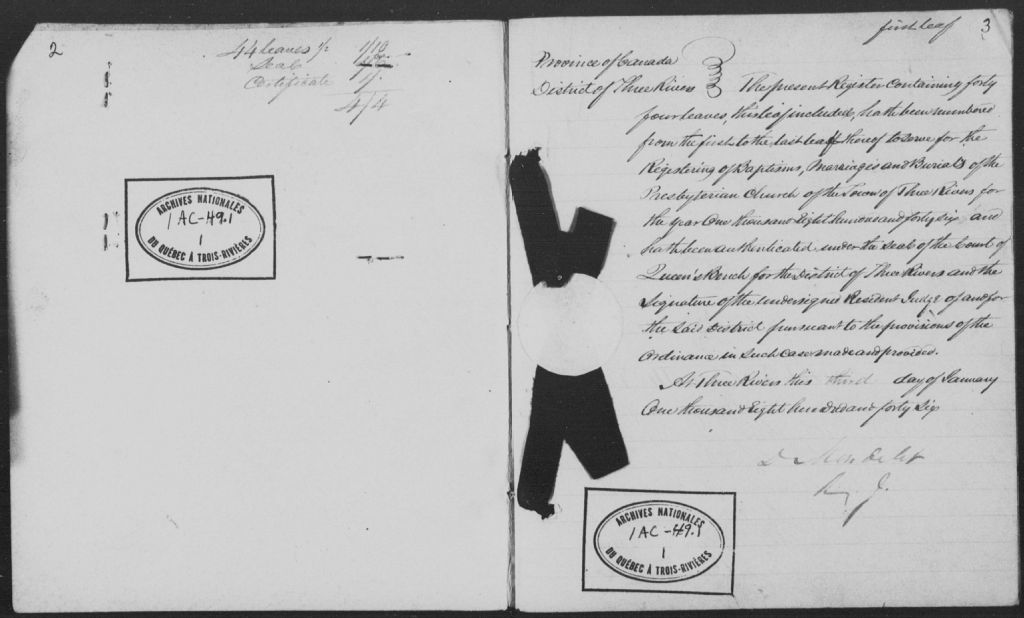 2
44 leaves 1/10
Seal
Certificate 1/.
4/4
ARCHIVES NATIONALES
1AC-49.1
1
DU QUÉBEC À TROIS-RIVIÈRES
first leaf 3
Province of Canada
District of Three Rivers
The present Register containing forty
four leaves, this leaf included, hath been numbered
from the first to the last leaf thereof to serve for the
Registering of Baptisms, Marriages and Burials of the
Presbyterian Church of the Town of Three Rivers for
the year One thousand Eight hundred and forty Six and
hath been authenticated under the seal of the Court of
Queen's Bench for the District of Three Rivers and the
Signature of the undersigned Resident Judge of and for
the said District pursuant to the provisions of the
Ordinance in such case made and provided.
At Three Rivers this third day of January
One thousand Eight hundred and forty Six
D Mondelet
J.
ARCHIVES NATIONALES
1AC-49.1
1
DU QUÉBEC À TROIS-RIVIÈRES